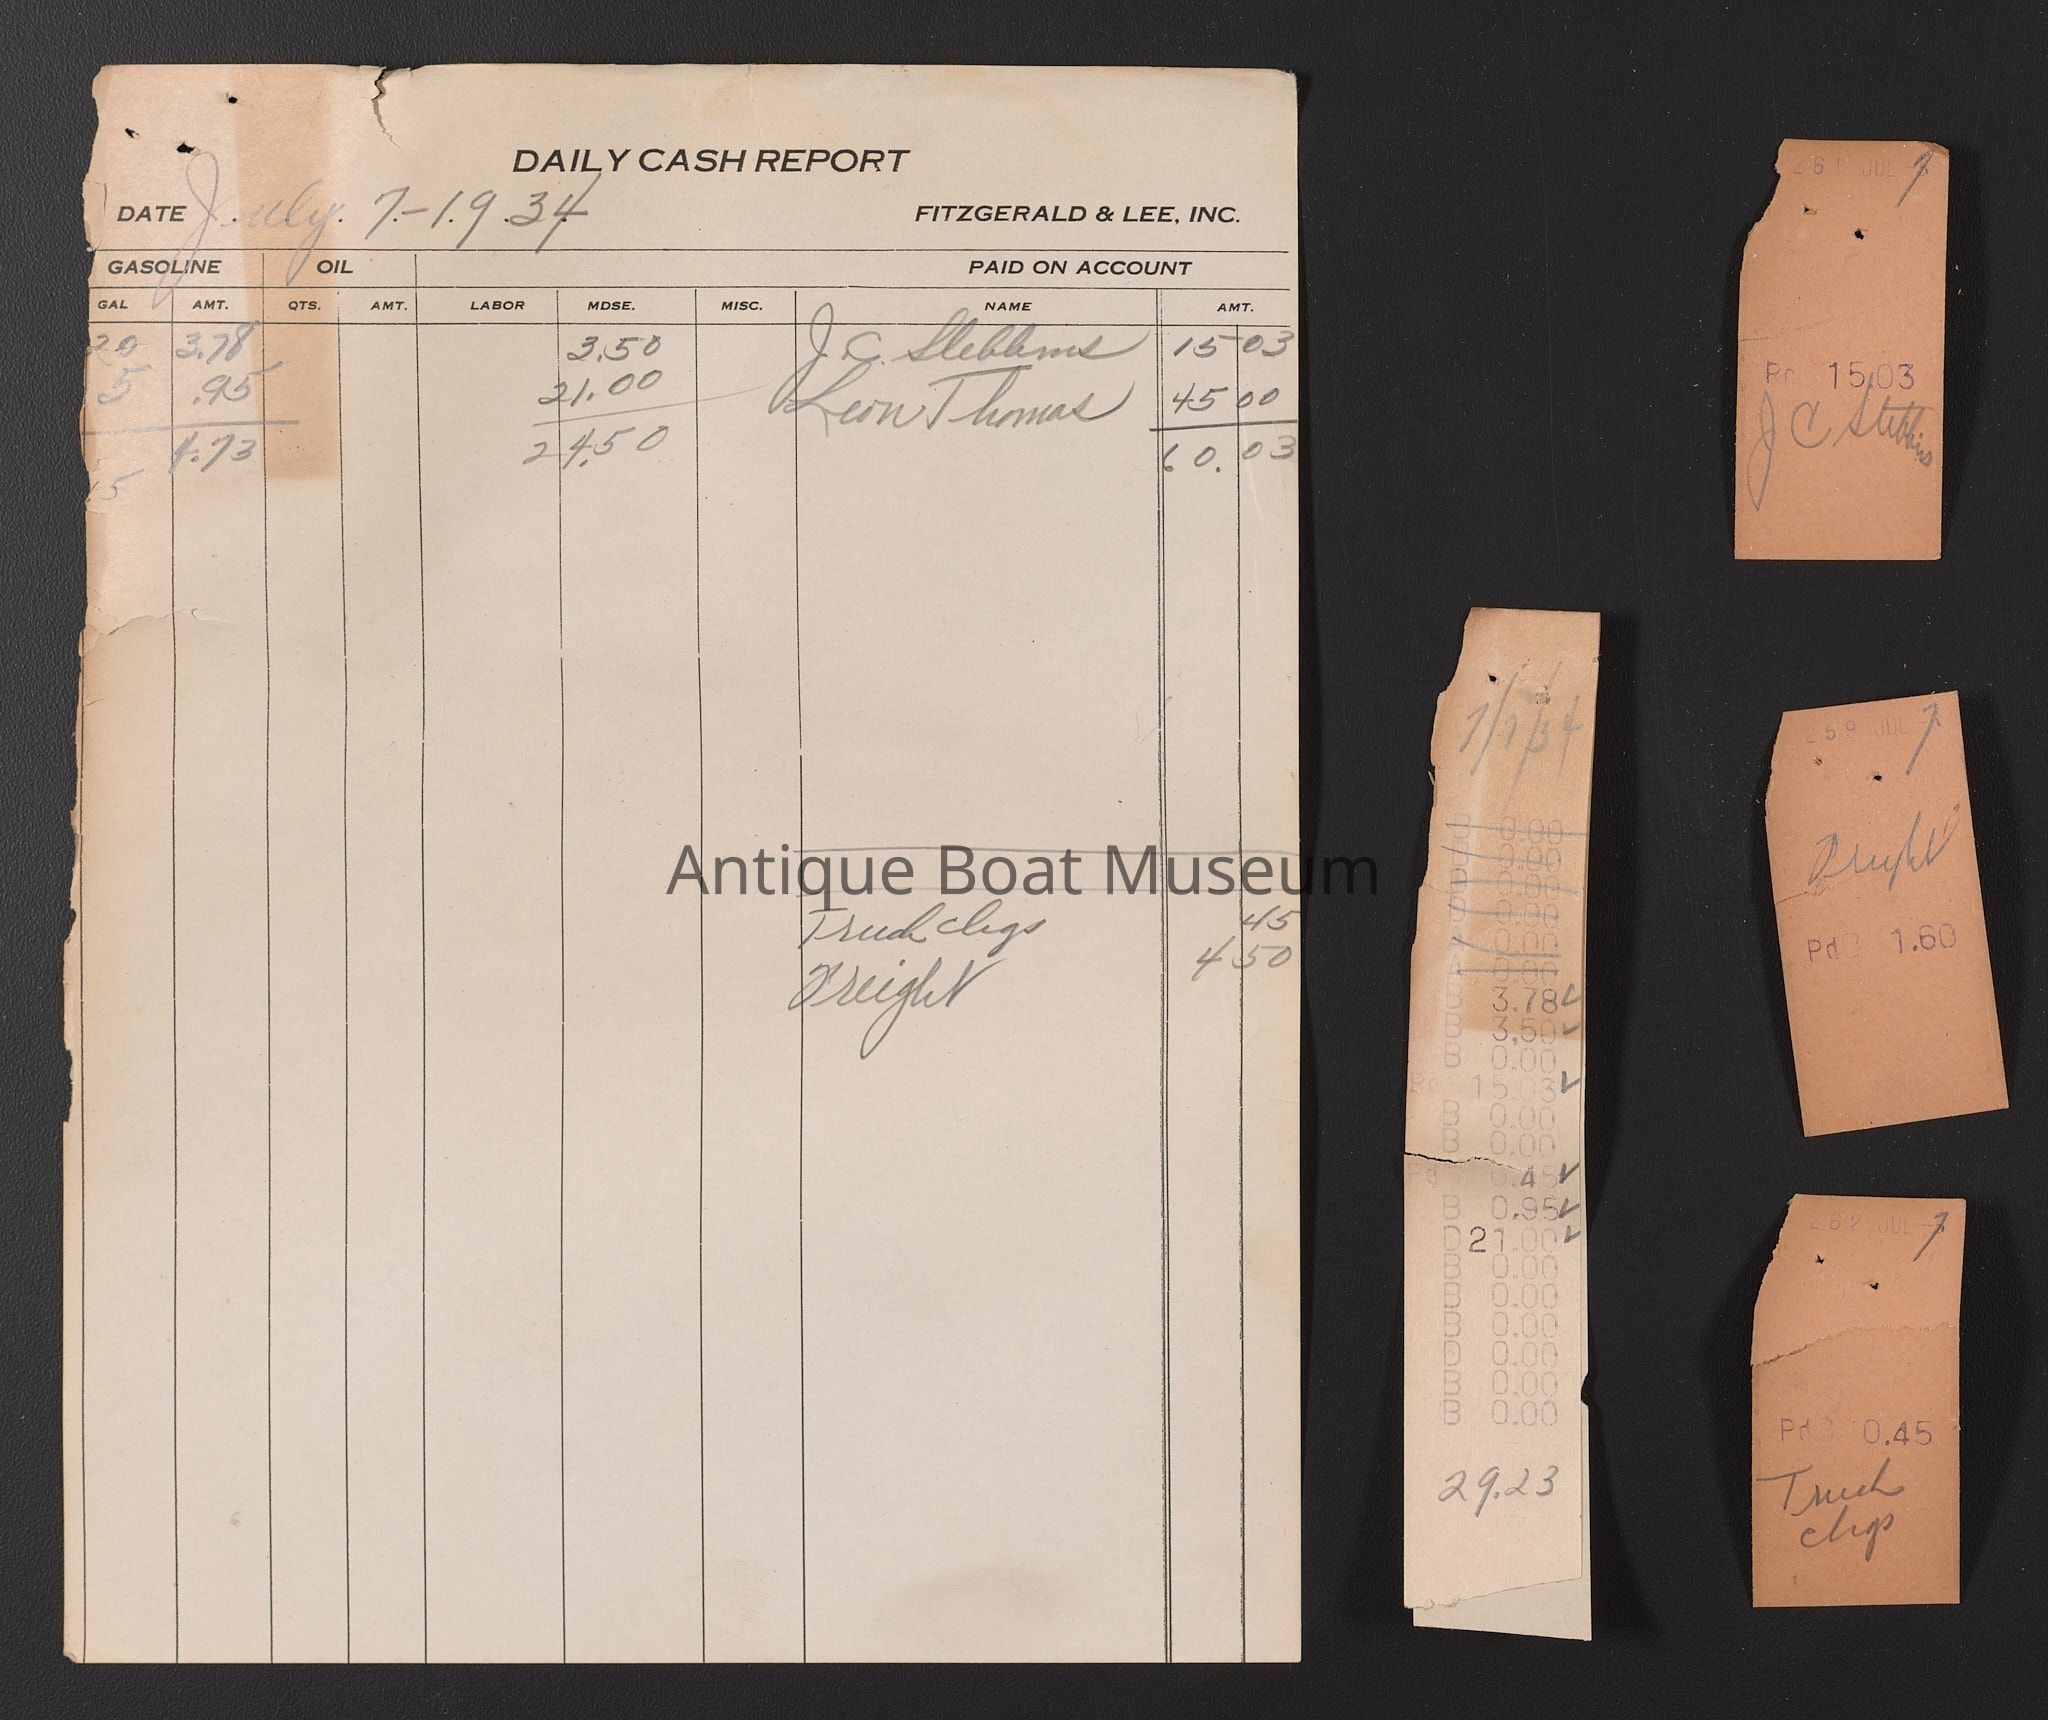 DAILY CASH REPORT
DATE July 7-1934 FITZGERALD & LEE, INC.
GASOLINE OIL PAID ON ACCOUNT
GAL AMT. QTS. AMT. LABOR MDSE. MISC. NAME AMT.
20 3.78 3.50 J. C. Stebbins 15 03
5 .95 21.00 Leon Thomas 45 00
4.73 24.50 60.03
Antique Boat Museum
Truck chgs 45
Freight 4 50
7/7/34
3.78
3.50
B 0.00
15.03
B 0.00
B 0.00
Pd .45
B 0.95
D 21.00
B 0.00
B 0.00
B 0.00
D 0.00
B 0.00
B 0.00
29.23
261 JUL 7
15.03
J C Stebbins
259 JUL 7
Freight
Pd 1.60
262 JUL 7
Pd 0.45
Truck
chgs